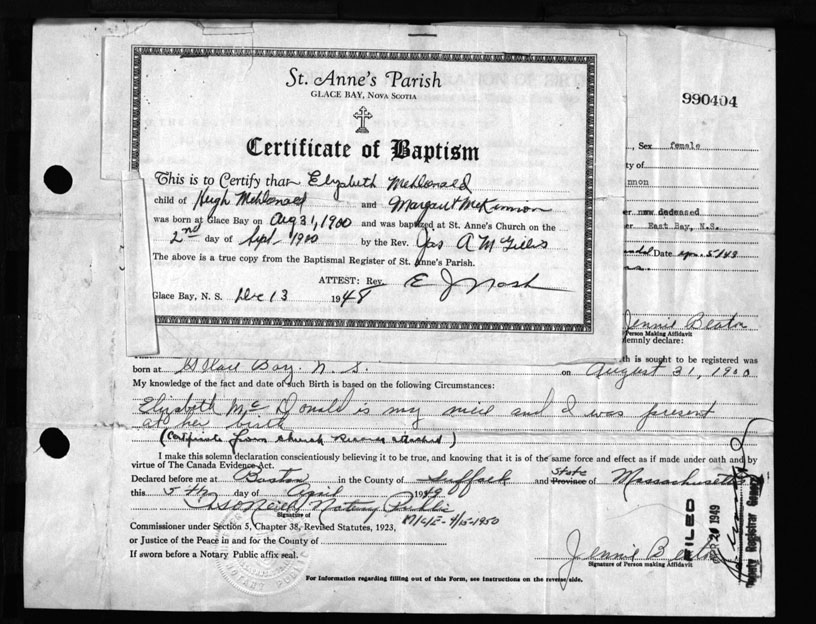 St. Anne's Parish
GLACE BAY, NOVA SCOTIA
Certificate of Baptism
This is to Certify that Elizabeth McDonald
child of Hugh McDonald and Margaret McKinnon
was born at Glace Bay on Aug 31, 1900 and was baptized at St. Anne's Church on the
2nd day of Sept 1900 by the Rev. Jas A M
The above is a true copy from the Baptismal Register of St. Anne's Parish.
ATTEST: Rev. E J Nash
Glace Bay, N. S. Dec 13 1948
990404
, Sex female
ty of
nnon
er now deceased
er East Bay, N.S.
Date Apr. 5/49
Jennie Beaton
Person Making Affidavit
lemnly declare:
th is sought to be registered was
born at Glace Bay. N. S. on August 31, 1900
My knowledge of the fact and date of such Birth is based on the following Circumstances:
Elizabeth Mc Donald is my niece and I was present
at her birth
(Certificate from Church Records attached)
I make this solemn declaration conscientiously believing it to be true, and knowing that it is of the same force and effect as if made under oath and by
virtue of The Canada Evidence Act.
Declared before me at Boston in the County of Suffolk and State Province of Massachusetts
this 5th day of April 1949
Notary Public
Signature of
Commissioner under Section 5, Chapter 38, Revised Statutes, 1923,
or Justice of the Peace in and for the County of
If sworn before a Notary Public affix seal.
NOTARY PUBLIC
Jennie Beaton
Signature of Person making Affidavit
For Information regarding filling out of this Form, see Instructions on the reverse side.
FILED
1949
Deputy Registrar General